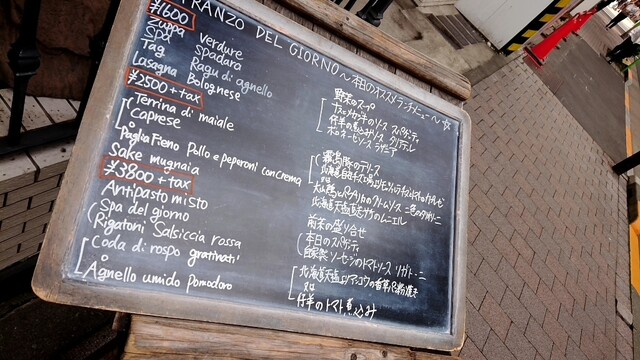 PRANZO DEL GIORNO〜本日のオススメランチメニュー〜☆
¥1600
Zuppa Verdure
Spa Spadaro
Tag Ragu di agnello
Lasagna Bolognese
¥2500+tax
Terrina di maiale
Caprese
Paglia Fieno Pollo e peperoni con Crema
Sake mugnaia
¥3800+tax
Antipasto misto
Spa del giorno
Rigatoni Salsiccia rossa
Coda di rospo gratinati
o
Agnello umido Pomodoro
野菜のスープ
スパゲティ
仔羊の煮込みソース タリアテッレ
ボロネーゼソース ラザニア
豚のテリーヌ
又は
クリームソース 二色のタリオリーニ
北海道 のムニエル
前菜の盛り合せ
本日のスパゲティ
自家製 ソーセージのトマトソース リガトーニ
北海道 アンコウの香草パン粉焼き
又は
仔羊のトマト煮込み